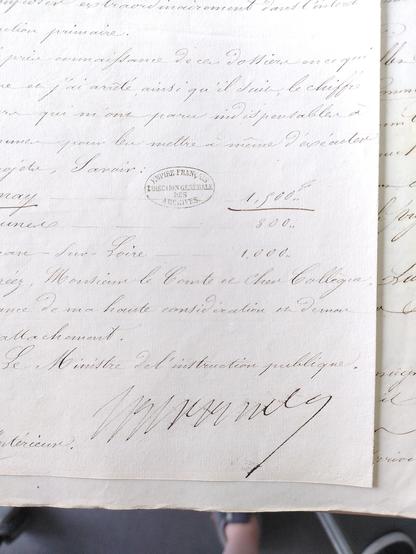 extraordinairement dans l'intérêt
ction primaire.
pris connaissance de ces dossiers en ce qui
ne et j'ai arrêté ainsi qu'il suit, le chiffre
urs qui m'ont paru indispensables à
munes pour les mettre à même d'exécuter
rojets, Savoir:
EMPIRE FRANÇAIS
DIRECTION GÉNÉRALE
DES
ARCHIVES.
nay 1,500 f
800..
sur-Loire 1,000..
réez, Monsieur le Comte et cher Collègue,
ance de ma haute considération et de mon
attachement.
Le Ministre de l'instruction publique.
ntérieur.